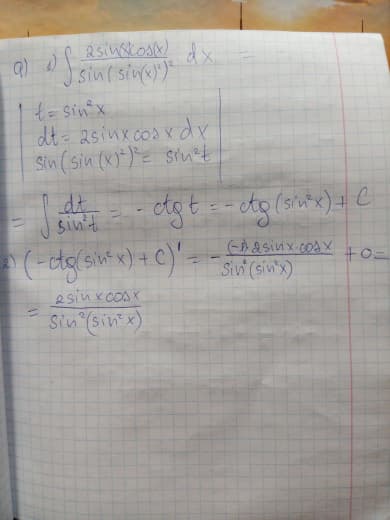 a) 1) ∫ 2sin(x)cos(x) / sin(sin(x)²)² dx =
t = sin²x
dt = 2sinx cosx dx
sin(sin(x)²)² = sin²t
= ∫ dt / sin²t = - ctg t = - ctg(sin²x) + C
2) (-ctg(sin²x) + C)' = - (-1)·2sinx·cosx / sin²(sin²x) + 0 =
= 2sinxcosx / sin²(sin²x)